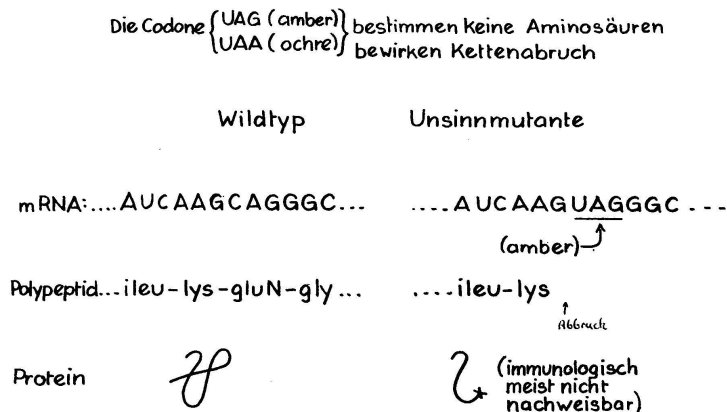 Die Codone {UAG (amber)} bestimmen keine Aminosäuren
{UAA (ochre)} bewirken Kettenabruch
Wildtyp Unsinnmutante
mRNA:....AUCAAGCAGGGC... ....AUCAAGUAGGGC...
(amber)
Polypeptid...ileu-lys-gluN-gly... ....ileu-lys
Abbruch
Protein (immunologisch
meist nicht
nachweisbar)